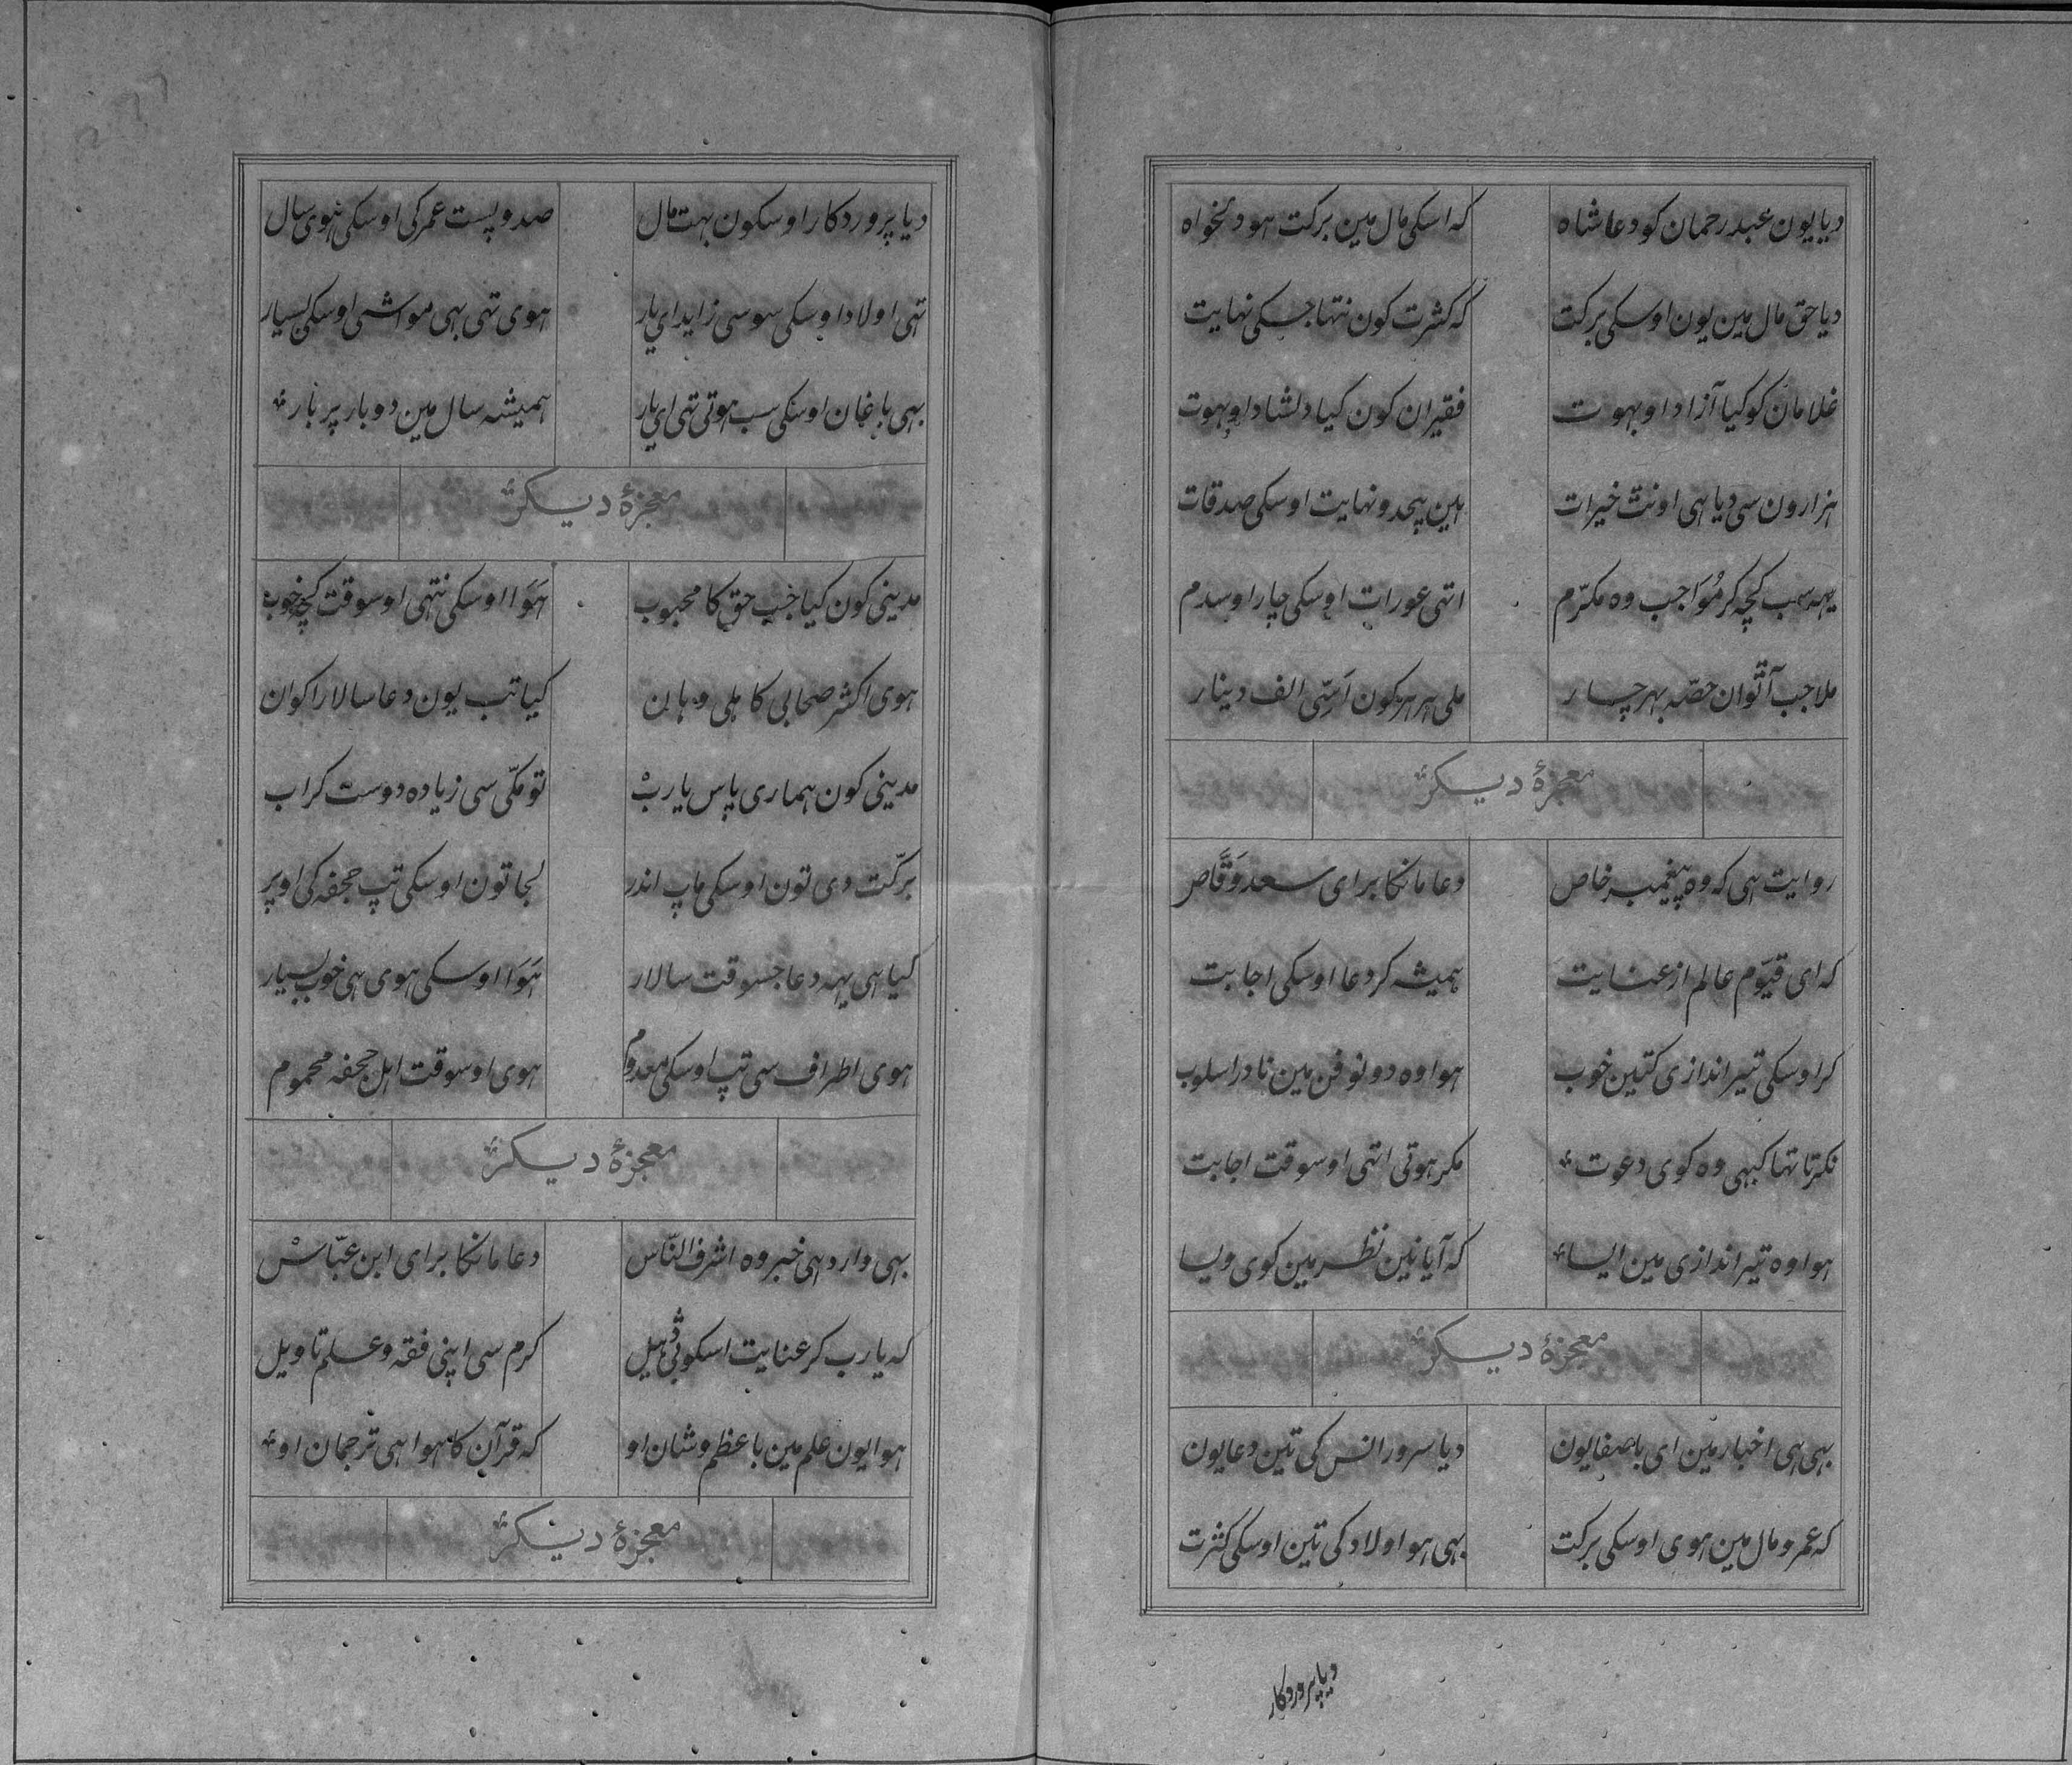 دیا یون عبد رحمان کو دعا شاه کہ اسکی مال مین برکت ہو دلخواه
دیا حق مال مین یون اوسکی برکت کہ کثرت کون نتہا جسکی نہایت
غلامان کو کیا آزاد او بہوت فقیران کون کیا دلشاد او بہوت
ہزارون سی دیا ہی اونٹ خیرات ہین بیحد و نہایت اوسکی صدقات
یہہ سب کچہ کر مُوَا جب وہ مکرّم اتہی عورات اوسکی چار اوسدم
ملا جب آٹوان حصّہ بہر چار ملی ہر ہر کون اَسّی الف دینار
معجزهٔ دیگر
روایت ہی کہ وہ پیغمبر خاص دعا مانگا برای سعد وَقَّاص
کہ ای قیّوم عالم از عنایت ہمیشہ کر دعا اوسکی اجابت
کر اوسکی تیر اندازی کتین خوب ہوا وہ دونو فن مین نادر اسلوب
نکرتا تہا کبہی وہ کوی دعوت مکر ہوتی اتہی اوسوقت اجابت
ہوا وہ تیر اندازی مین ایسا کہ آیا نین نظر مین کوی ویسا
معجزهٔ دیگر
بہی ہی اخبار مین ای باصفا یون دیا سرور انس کی تین دعا یون
کہ عمر و مال مین ہوی اوسکی برکت بہی ہو اولاد کی تین اوسکی کثرت
دیا پروردکار
دیا پروردکار اوسکون بہت مال صد و بست عمر کی اوسکی ہوی سال
تہی اولاد اوسکی سو سی زاید ای یار ہوی تہی بہی مواشی اوسکی بسیار
بہی باغان اوسکی سب ہوتی تہی ای یار ہمیشہ سال مین دو بار پر بار
معجزهٔ دیگر
مدینی کون کیا جب حق کا محبوب ہَوَا اوسکی نتہی اوسوقت کچہ خوب
ہوی اکثر صحابی کاہلی وہان کیا تب یون دعا سالار اکوان
مدینی کون ہماری پاس یا رب تو مکّی سی زیادہ دوست کر اب
برکّت دی تون اوسکی ماپ اندر لجا تون اوسکی تپ جحفہ کی اوپر
کیا ہی یہہ دعا جسوقت سالار ہَوَا اوسکی ہوی ہی خوب بسیار
ہوی اطراف سی تپ اوسکی معدوم ہوی اوسوقت اہل جحفہ محموم
معجزهٔ دیگر
بہی وارد ہی خبر وہ اشرف النّاس دعا مانگا برای ابن عبّاس
کہ یا رب کر عنایت اسکو بی کرم سی اپنی فقہ و علم تاویل
ہوا یون علم مین با عظم و شان او کہ قرآن کا ہوا ہی ترجمان او
معجزهٔ دیگر